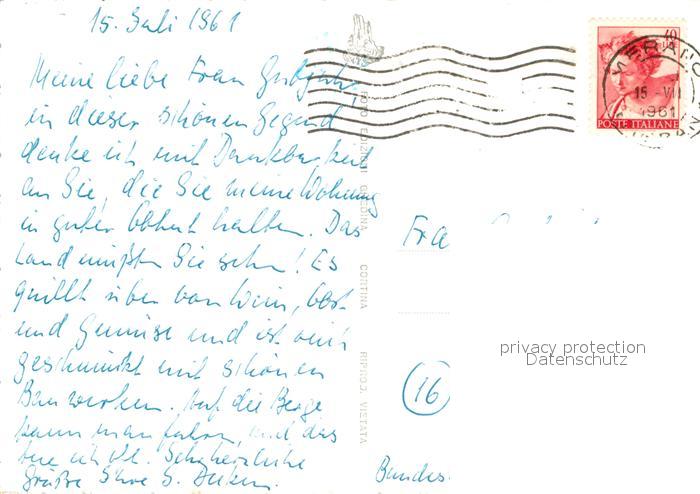 15. Juli 1961
Meine liebe Frau
in dieser schönen Gegend
denke ich mit Dankbarkeit
an Sie, die Sie meine Wohnung
in guter Obhut halten. Das
Land müßten Sie sehn! Es
quillt über von Wein, Obst
und Gemüse und ist reich
geschmückt mit schönen
Bauwerken. Auf die Berge
kann man fahren, und das
tue ich oft. Sehr herzliche
Grüße Ihre S.
FOTO EDIZIONI GHEDINA CORTINA RIPROD. VIETATA
MERANO
15 - VII
1961
POSTE ITALIANE
Fra
privacy protection
Datenschutz
(16)
Bundes